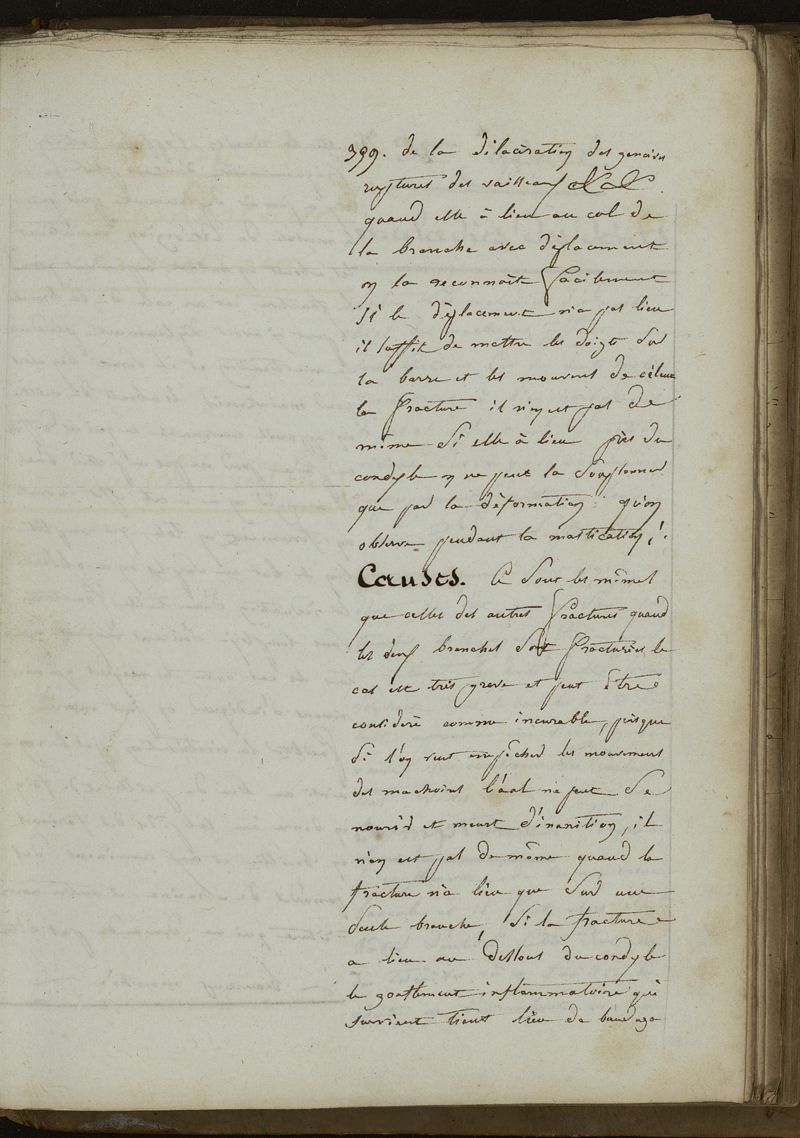 399. de la dilacération des gencives
ruptures des vaisseaux &c &c.
quand elle à lieu au col de
la branche avec déplacement
on la reconnait facilement
Si le déplacement n'a pas lieu
il suffit de mettre les doigts sur
la barre et les mouvent décéleux
la fracture il n'en est pas de
même Si elle à lieu près du
condyle on ne peut la soupçonner
que par la déformation qu'on
observe pendant la mastication,!.
Causes. Ce sont les mêmes
que celles des autres fractures quand
les deux branches sont fracturées le
cas est très grave et peut être
considéré comme incurable, puisque
Si l'on veut empêcher les mouvement
des machoires l'ãal ne peut se
nourir et meurt d'inanition, il
n'en est pas de même quand la
fracture n'a lieu que sur une
seule branche, Si la fracture
a lieu au dessous du condyle
le gonflement inflammatoire qui
survient tient lieu de bandage